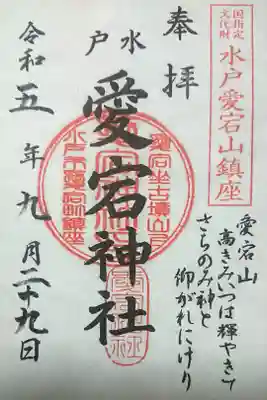 国指定
文化財
水戸愛宕山鎮座
奉拝
水戸
愛宕神社
令和五年九月二十九日
愛宕山
高きみいつは輝やきつ
さちのみ神と
仰がれにけり
水戸市愛宕町鎮座